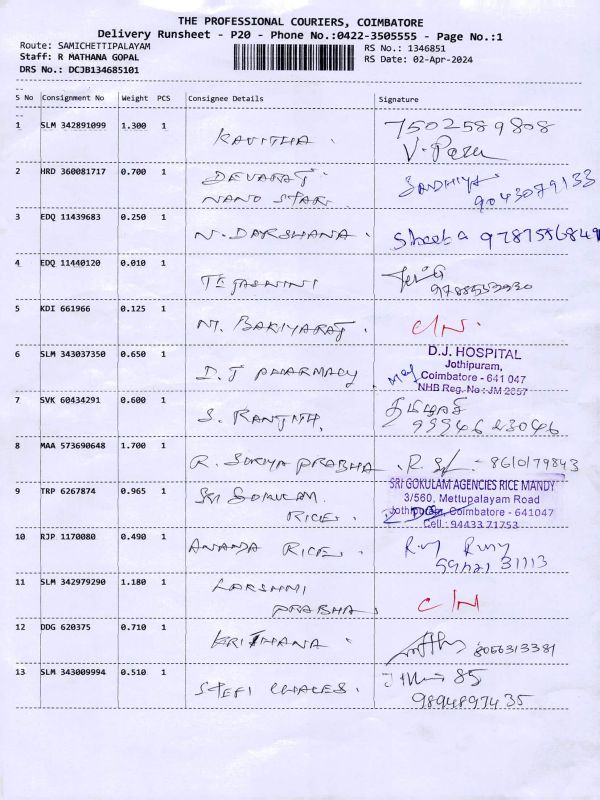 THE PROFESSIONAL COURIERS, COIMBATORE
Delivery Runsheet - P20 - Phone No.:0422-3505555 - Page No.:1
Route: SAMICHETTIPALAYAM RS No.: 1346851
Staff: R MATHANA GOPAL RS Date: 02-Apr-2024
DRS No.: DCJB134685101
S No Consignment No Weight PCS Consignee Details Signature
1 SLM 342891099 1.300 1 KAVITHA. 7502589808
2 HRD 360081717 0.700 1 DEVARAJ. SANDHIYA
NANO STAR 9043079133
3 EDQ 11439683 0.250 1 N. DARSHANA.
4 EDQ 11440120 0.010 1 TEJASHINI
5 KDI 661966 0.125 1 M. BAKIYARAJ. C/N.
6 SLM 343037350 0.650 1 D.J PHARMACY D.J. HOSPITAL
Jothipuram,
Coimbatore - 641 047
NHB Reg. No : JM 2857
7 SVK 60434291 0.600 1 S. RANJITH.
99946 23046
8 MAA 573690648 1.700 1 R. SURIYA PRABHA. 8610179843
9 TRP 6267874 0.965 1 SRI GOKULAM SRI GOKULAM AGENCIES RICE MANDY
RICE. 3/560, Mettupalayam Road
Jothipuram, Coimbatore - 641047
Cell : 94433 71753
10 RJP 1170080 0.490 1 ANANDA RICE.
11 SLM 342979290 1.180 1 LAKSHMI
PRABHA. C/N
12 DDG 620375 0.710 1 KRITHANA. 8056313381
13 SLM 343009994 0.510 1 STEFI CHALES. 85
9894897435